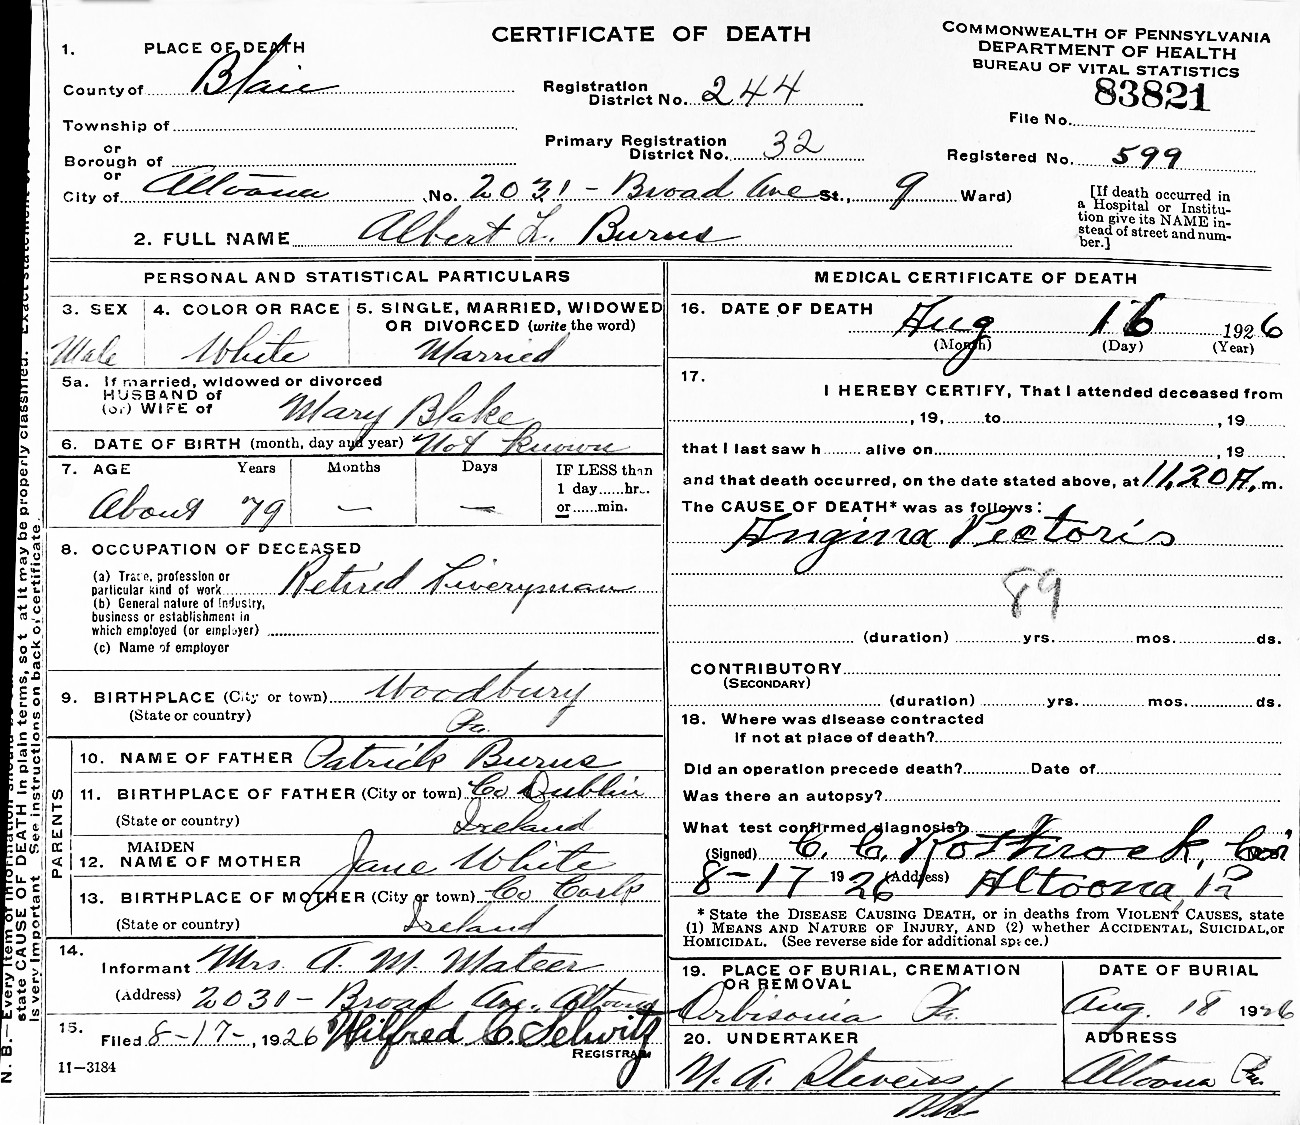 CERTIFICATE OF DEATH
COMMONWEALTH OF PENNSYLVANIA
DEPARTMENT OF HEALTH
BUREAU OF VITAL STATISTICS
83821
File No.
Registered No. 599
1. PLACE OF DEATH
County of Blair
Registration District No. 244
Township of
or
Borough of
Primary Registration District No. 32
or
City of Altoona, No. 2031 - Broad Ave St., 9 Ward)
[If death occurred in
a Hospital or Institu-
tion give its NAME in-
stead of street and num-
ber.]
2. FULL NAME Albert L. Burns
PERSONAL AND STATISTICAL PARTICULARS
3. SEX
Male
4. COLOR OR RACE
White
5. SINGLE, MARRIED, WIDOWED
OR DIVORCED (write the word)
Married
5a. If married, widowed or divorced
HUSBAND of
(or) WIFE of Mary Blake
6. DATE OF BIRTH (month, day and year) Not Known
7. AGE Years Months Days
About 79 — —
IF LESS than
1 day......hr..
or......min.
8. OCCUPATION OF DECEASED
(a) Trade, profession or
particular kind of work Retired Liveryman
(b) General nature of Industry,
business or establishment in
which employed (or employer)
(c) Name of employer
9. BIRTHPLACE (City or town) Woodbury
(State or country) Pa.
PARENTS
10. NAME OF FATHER Patrick Burns
11. BIRTHPLACE OF FATHER (City or town) Co Dublin
(State or country) Ireland
12. MAIDEN
NAME OF MOTHER Jane White
13. BIRTHPLACE OF MOTHER (City or town) Co Cork
(State or country) Ireland
14.
Informant Mrs. A. M. Mateer
(Address) 2031 - Broad Ave. Altoona
15.
Filed 8-17-, 1926 Wilfred C. Selwitz
REGISTRAR
11-3184
MEDICAL CERTIFICATE OF DEATH
16. DATE OF DEATH
Aug 16 1926
(Month) (Day) (Year)
17.
I HEREBY CERTIFY, That I attended deceased from
, 19, to , 19
that I last saw h........ alive on , 19
and that death occurred, on the date stated above, at 11,20 A. m.
The CAUSE OF DEATH* was as follows:
Angina Pectoris
89
(duration) yrs. mos. ds.
CONTRIBUTORY
(SECONDARY)
(duration) yrs. mos. ds.
18. Where was disease contracted
If not at place of death?
Did an operation precede death? Date of
Was there an autopsy?
What test confirmed diagnosis?
(Signed) C. C. Rothrock, Cor
8-17 1926 (Address) Altoona, Pa
* State the DISEASE CAUSING DEATH, or in deaths from VIOLENT CAUSES, state
(1) MEANS AND NATURE OF INJURY, AND (2) whether ACCIDENTAL, SUICIDAL, or
HOMICIDAL. (See reverse side for additional space.)
19. PLACE OF BURIAL, CREMATION
OR REMOVAL
Orbisonia Pa.
DATE OF BURIAL
Aug. 18 1926
20. UNDERTAKER
N. A. Stevens
ADDRESS
Altoona Pa.